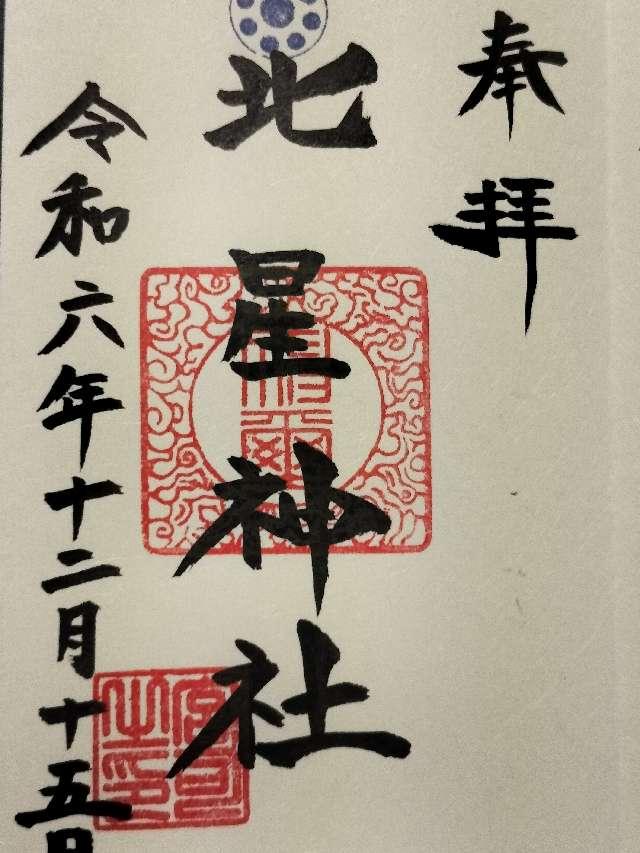 奉拝
北星神社
令和六年十二月十五日